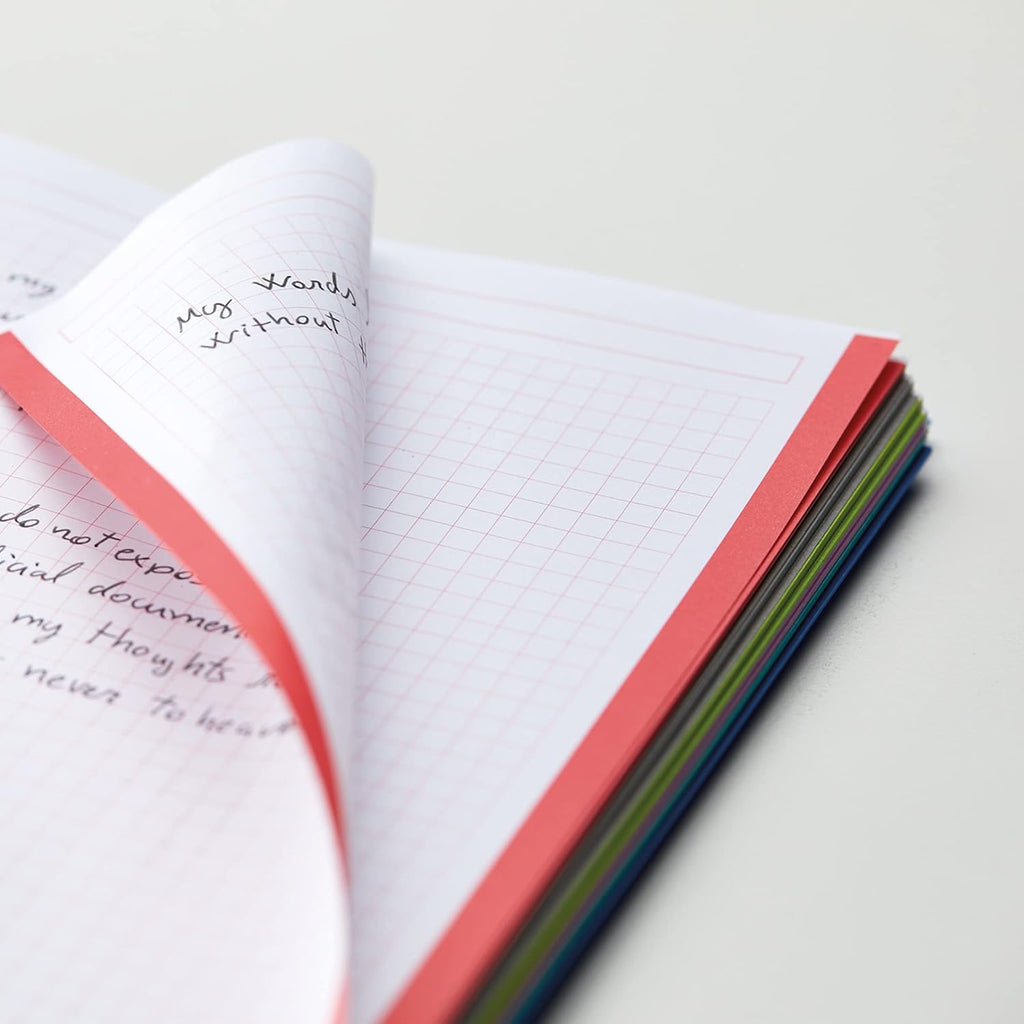 My words
without
do not expos
icial documen
my thoughts
never to hear